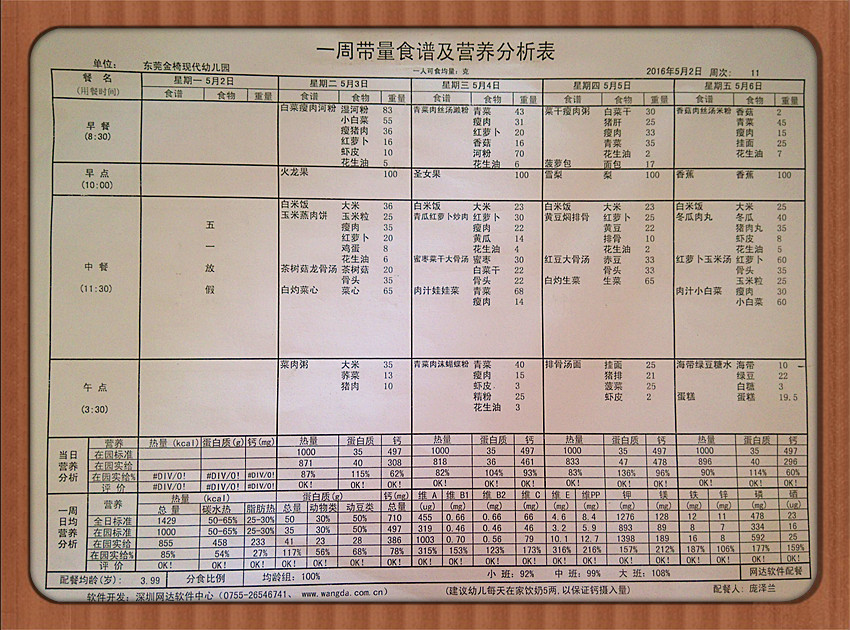 一周带量食谱及营养分析表
单位: 东莞金椅现代幼儿园 一人可食均量: 克 2016年5月2日 周次: 11
餐 名 (用餐时间) 星期一 5月2日 星期二 5月3日 星期三 5月4日 星期四 5月5日 星期五 5月6日
食谱 食物 重量 食谱 食物 重量 食谱 食物 重量 食谱 食物 重量 食谱 食物 重量
早 餐 (8:30)
白菜瘦肉河粉 湿河粉 83 青菜肉丝汤濑粉 青菜 43 菜干瘦肉粥 白菜干 30 香菇肉丝汤米粉 香菇 2
小白菜 55 瘦肉 31 猪肝 25 青菜 45
瘦猪肉 36 红萝卜 20 瘦肉 33 瘦肉 15
红萝卜 16 香菇 16 青菜 35 挂面 25
虾皮 10 河粉 70 花生油 2 花生油 7
花生油 5 花生油 6 菠萝包 面包 17
早 点 (10:00) 火龙果 100 圣女果 100 雪梨 梨 100 香蕉 香蕉 100
中 餐 (11:30)
五一放假
白米饭 大米 36 白米饭 大米 23 白米饭 大米 23 白米饭 大米 25
玉米蒸肉饼 玉米粒 25 青瓜红萝卜炒肉 红萝卜 30 黄豆焖排骨 红萝卜 25 冬瓜肉丸 冬瓜 40
瘦肉 35 瘦肉 22 黄豆 22 猪肉丸 35
红萝卜 20 黄瓜 14 排骨 10 虾皮 8
鸡蛋 8 花生油 4 花生油 2 花生油 5
花生油 6 蜜枣菜干大骨汤 蜜枣 30 红豆大骨汤 赤豆 33 红萝卜玉米汤 红萝卜 60
茶树菇龙骨汤 茶树菇 20 白菜干 22 骨头 33 骨头 35
骨头 35 骨头 22 白灼生菜 生菜 65 玉米粒 25
白灼菜心 菜心 65 肉汁娃娃菜 青菜 68 肉汁小白菜 瘦肉 30
瘦肉 14 小白菜 60
午 点 (3:30)
菜肉粥 大米 35 青菜肉沫蝴蝶粉 青菜 40 排骨汤面 挂面 25 海带绿豆糖水 海带 10
荞菜 13 瘦肉 15 猪排 21 绿豆 22
猪肉 10 虾皮 3 菠菜 25 白糖 3
精粉 25 虾皮 2 蛋糕 蛋糕 19.5
花生油 3
当日营养分析
营养 热量(kcal) 蛋白质(g) 钙(mg) 热量 蛋白质 钙 热量 蛋白质 钙 热量 蛋白质 钙 热量 蛋白质 钙
在园标准 1000 35 497 1000 35 497 1000 35 497 1000 35 497
在园实给 871 40 308 818 36 461 833 47 478 896 40 296
在园实给% #DIV/0! #DIV/0! #DIV/0! 87% 115% 62% 82% 104% 93% 83% 136% 96% 90% 114% 60%
评 价 #DIV/0! #DIV/0! #DIV/0! OK! OK! OK! OK! OK! OK! OK! OK! OK! OK! OK! OK!
一周日均营养分析
营养 热量 (kcal) 蛋白质(g) 钙(mg) 维 A 维 B1 维 B2 维 C 维 E 维PP 钾 镁 铁 锌 磷 硒
总 量 碳水热 脂肪热 总量 动物类 动豆类 总量 (ug) (mg) (mg) (mg) (mg) (mg) (mg) (mg) (mg) (mg) (mg) (ug)
全日标准 1429 50-65% 25-30% 50 30% 50% 710 455 0.66 0.66 66 4.6 8.4 1276 128 12 11 478 23
在园标准 1000 50-65% 25-30% 35 30% 50% 497 319 0.46 0.46 46 3.2 5.9 893 89 8 7 334 16
在园实给 855 458 233 41 23 28 386 1003 0.70 0.56 79 10.1 12.7 1398 189 16 8 592 25
在园实给% 85% 54% 27% 117% 56% 68% 78% 315% 153% 123% 173% 316% 216% 157% 212% 187% 106% 177% 159%
评 价 OK! OK! OK! OK! OK! OK! OK! OK! OK! OK! OK! OK! OK! OK! OK! OK! OK! OK! OK!
配餐均龄(岁): 3.99 分食比例 均龄组: 100% 小 班: 92% 中 班: 99% 大 班: 108% 网达软件配餐
软件开发: 深圳网达软件中心 (0755-26546741、 www.wangda.com.cn) (建议幼儿每天在家饮奶5两,以保证钙摄入量) 配餐人: 庞泽兰